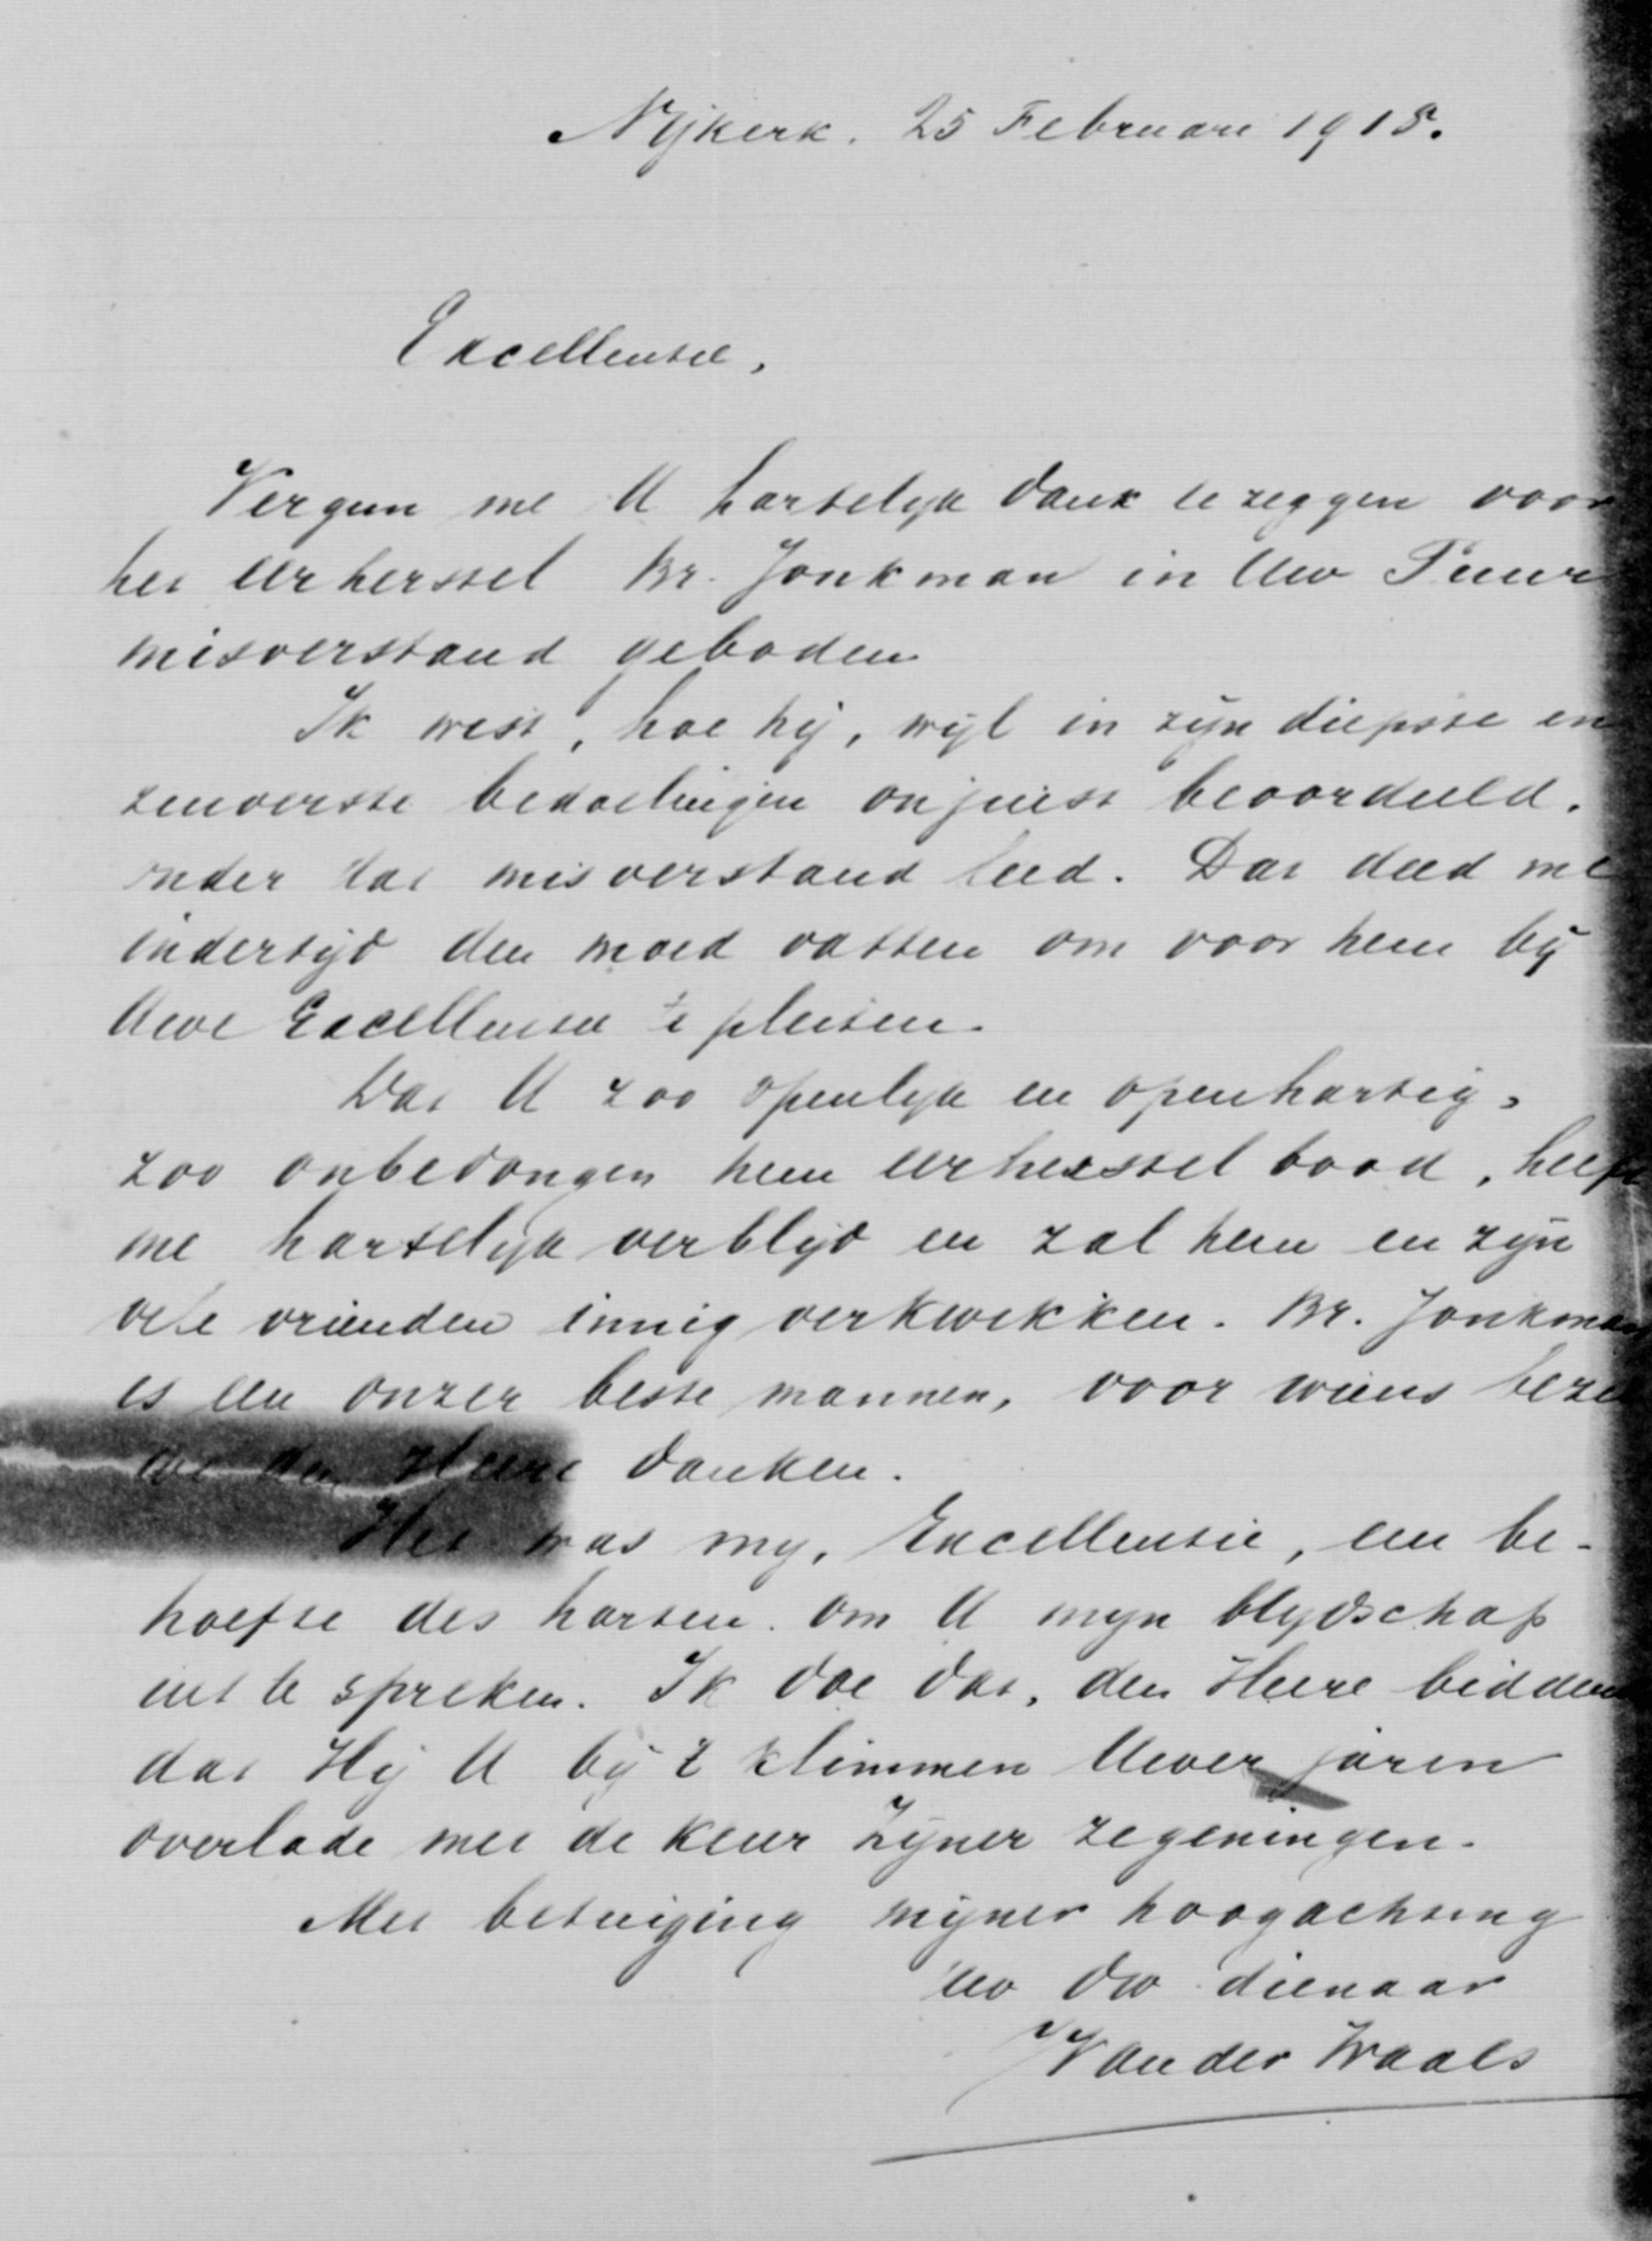 Nijkerk. 25 Februari 1918.
Excellentie,
Vergun me U hartelijk dank te zeggen voor
het eerherstel Br. Jonkman in Uw
misverstand geboden
Ik wist, hoe hij, wijl in zijn diepste en
zuiverste bedoelingen onjuist beoordeeld,
onder dat misverstand leed. Dat deed me
indertijd den moed vatten om voor hem bij
Uwe Excellentie te pleiten.
Dat U zoo openlijk en openhartig,
zoo onbevangen hem eerherstel bood, heeft
me hartelijk verblijd en zal hem en zijn
vele vrienden innig verkwikken. Br. Jonkman
is een onzer beste mannen, voor wiens
we den Heere danken.
Het was mij, Excellentie, een be-
hoefte des harten om U mijn blijdschap
uit te spreken. Ik doe dat, den Heere biddend
dat Hij U bij 't klimmen Uwer jaren
overlade met de keur Zijner zegeningen.
Met betuiging mijner hoogachting
Uw dw dienaar
Van der Waals